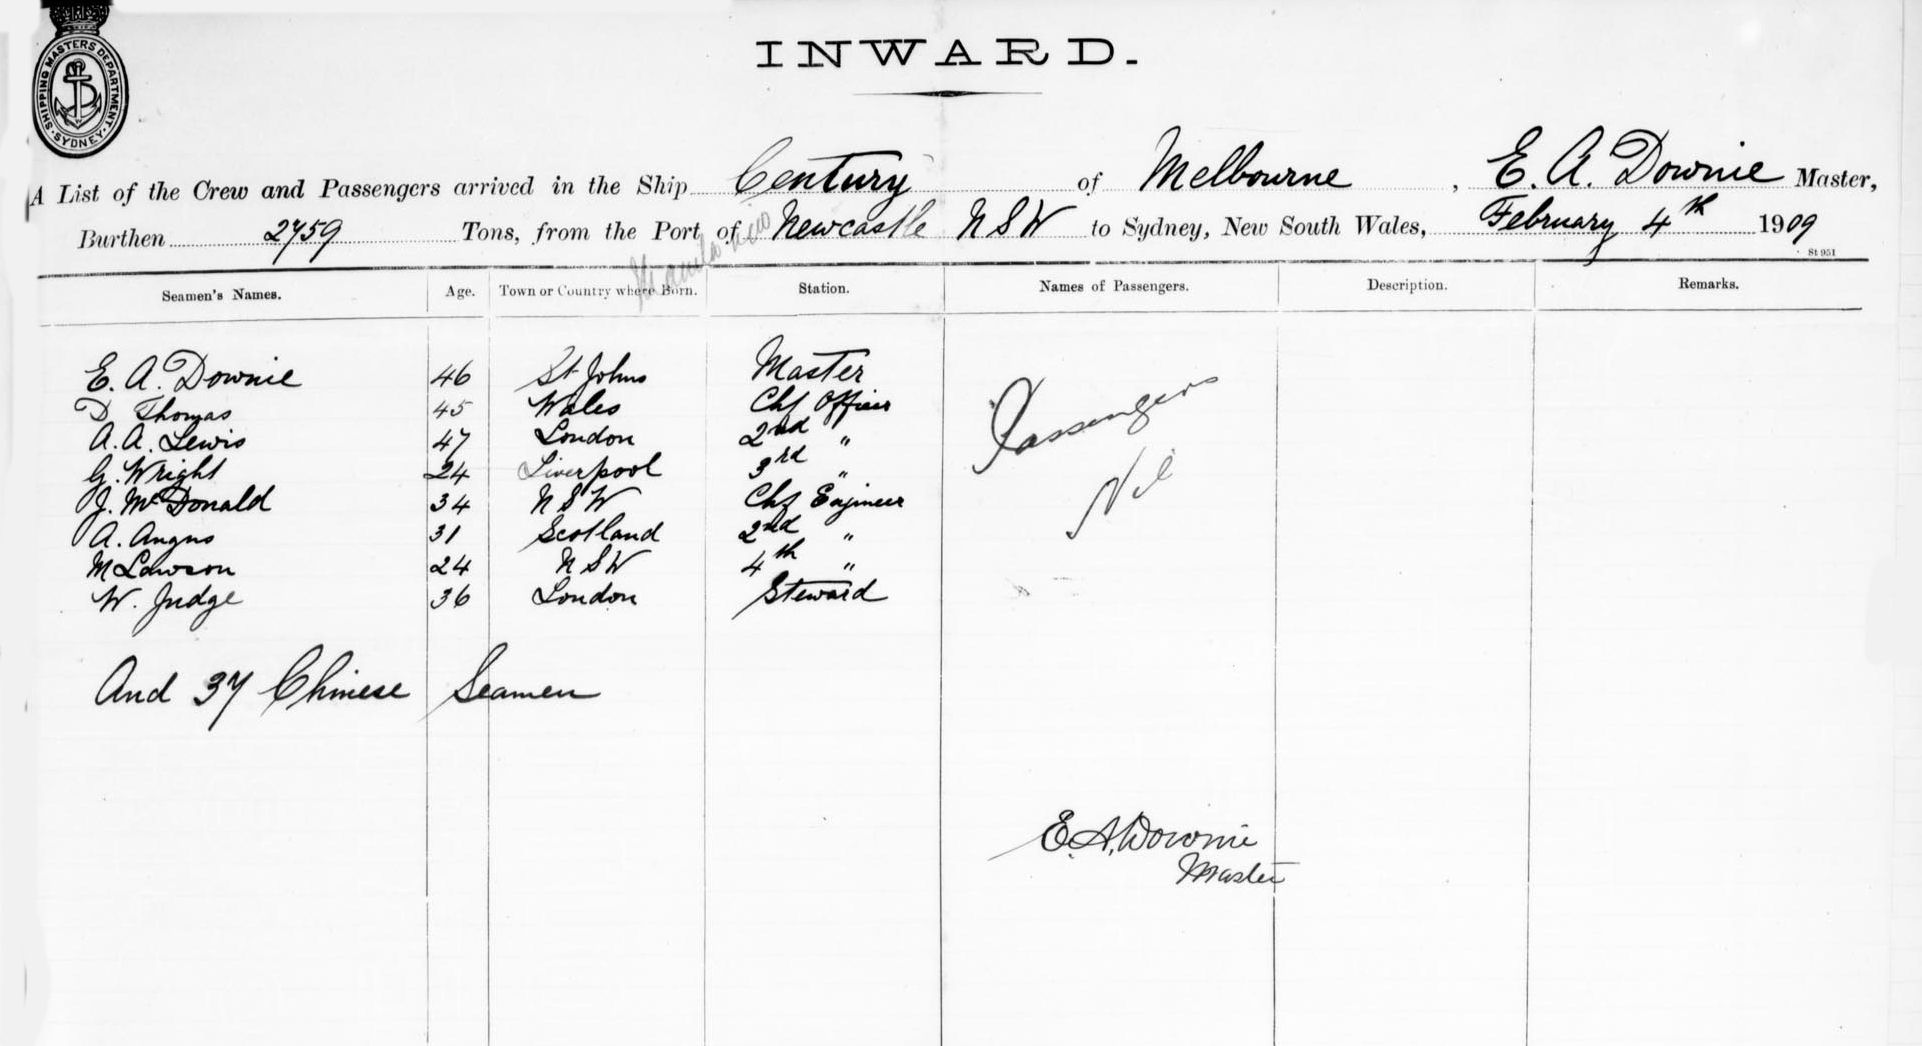 SHIPPING MASTERS DEPARTMENT. SYDNEY
INWARD.
A List of the Crew and Passengers arrived in the Ship Century of Melbourne, E. A. Downie Master,
Burthen 2759 Tons, from the Port of Newcastle NSW to Sydney, New South Wales, February 4th 1909
Manila
St 951
Seamen's Names. Age. Town or Country where Born. Station. Names of Passengers. Description. Remarks.
E. A. Downie 46 St Johns Master
D Thomas 45 Wales Chf Officer
A. A. Lewis 47 London 2nd "
G. Wright 24 Liverpool 3rd "
J. McDonald 34 NSW Chf Engineer
A. Angus 31 Scotland 2nd "
M Lawson 24 NSW 4th "
W. Judge 36 London Steward
Passengers
Nil
And 37 Chinese Seamen
E. A. Downie
Master